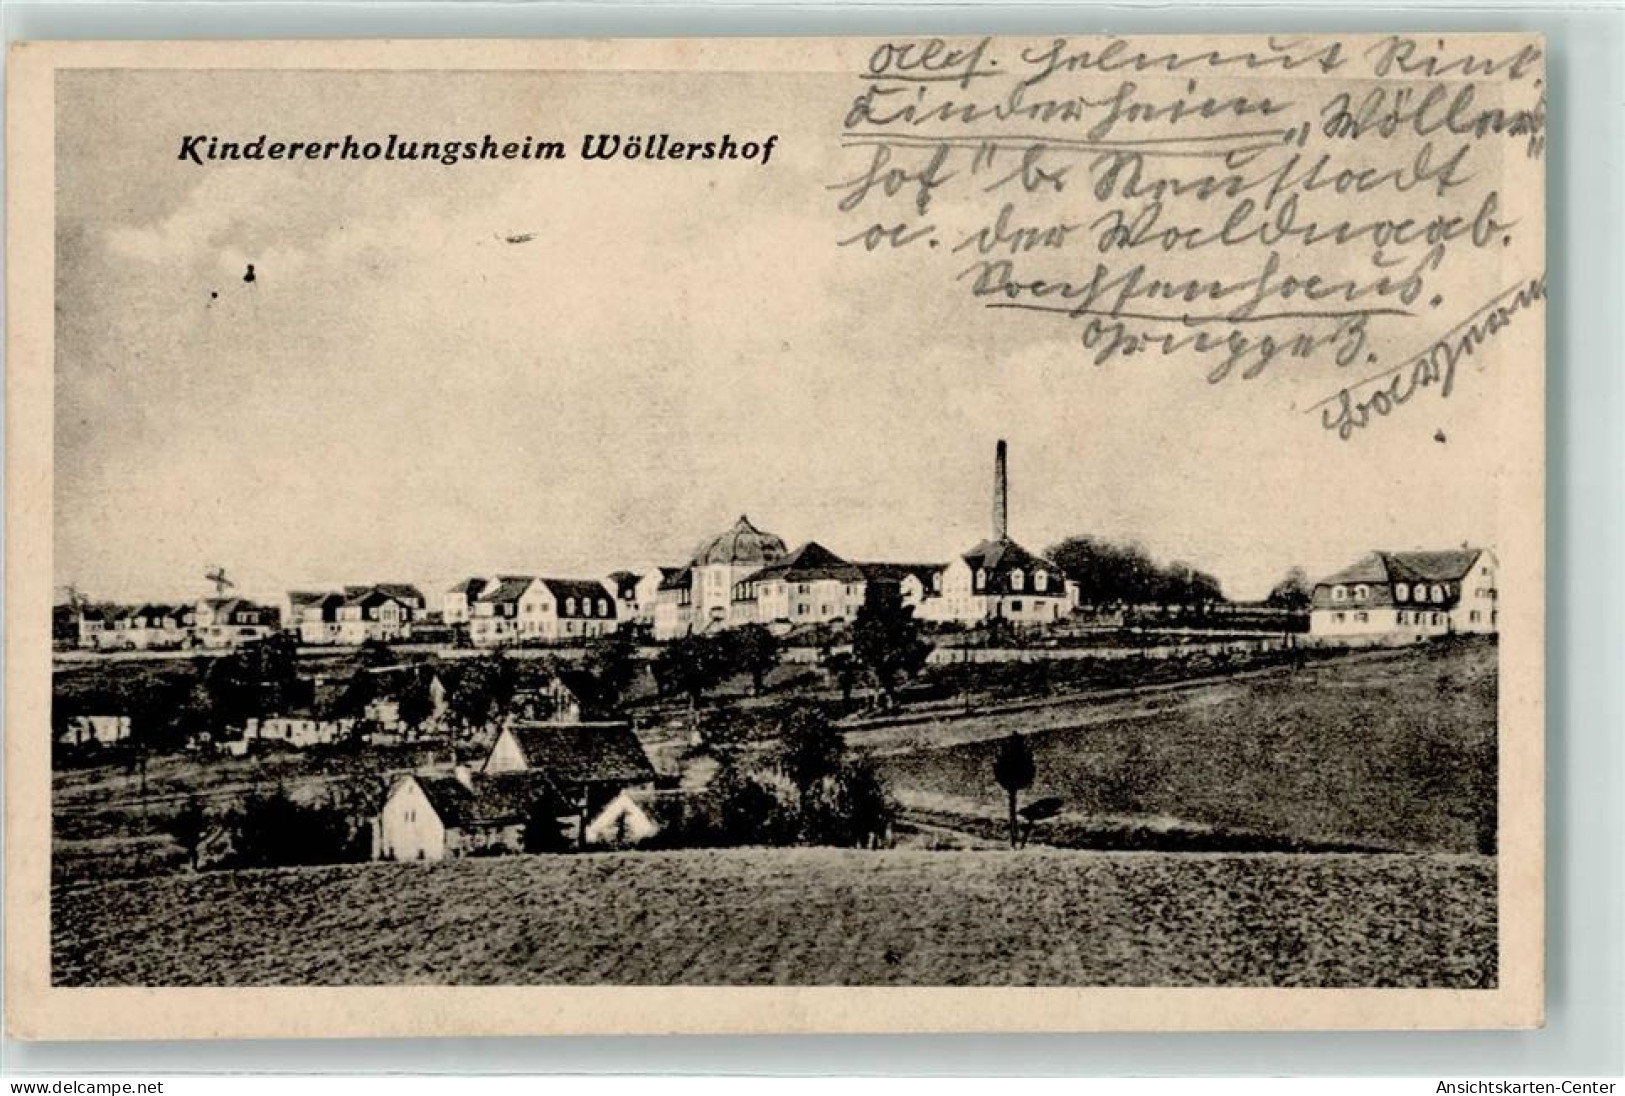 Kindererholungsheim Wöllershof
Abs. Helmut Rink.
Kinderheim „Wöllers
hof" b. Neustadt
a. der Waldnaab.
Sachsenhaus.
Gruppe 3.
Bayern
delcampe.net
Ansichtskarten-Center